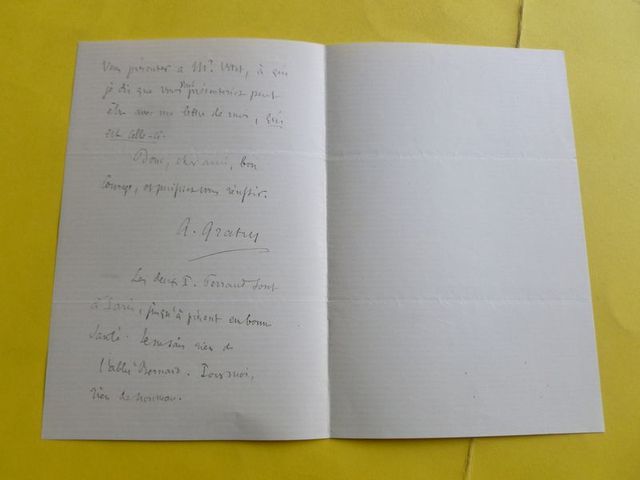 Vous présenter à Mr. Vitet, à qui
je dis que vous vous présenteriez peut
être avec une lettre de moi, qui
est celle-ci.
Donc, cher ami, bon
courage, et puissiez-vous réussir.
A. Gratry
Les deux P. Perraud sont
à Paris, jusqu'à présent en bonne
santé. Je ne sais rien de
l'abbé Bernard. Pour moi,
rien de nouveau.